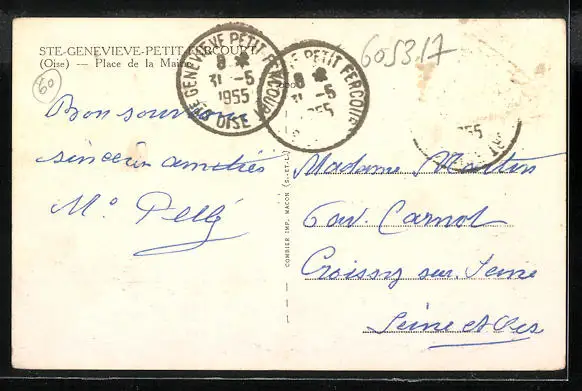 STE-GENEVIEVE-PETIT-FERCOURT
(Oise) — Place de la Mairie
60
605317
STE GENEVIEVE PETIT FERCOURT
8 *
31 -5
1955
OISE
PETIT FERCOURT
8 *
31 -5
1955
955
Bon souvenir
sincères amitiés
M. Pellé
COMBIER IMP. MACON (S.-ET-L.)
Madame Martin
6 av. Carnot
Croissy sur Seine
Seine et Oise